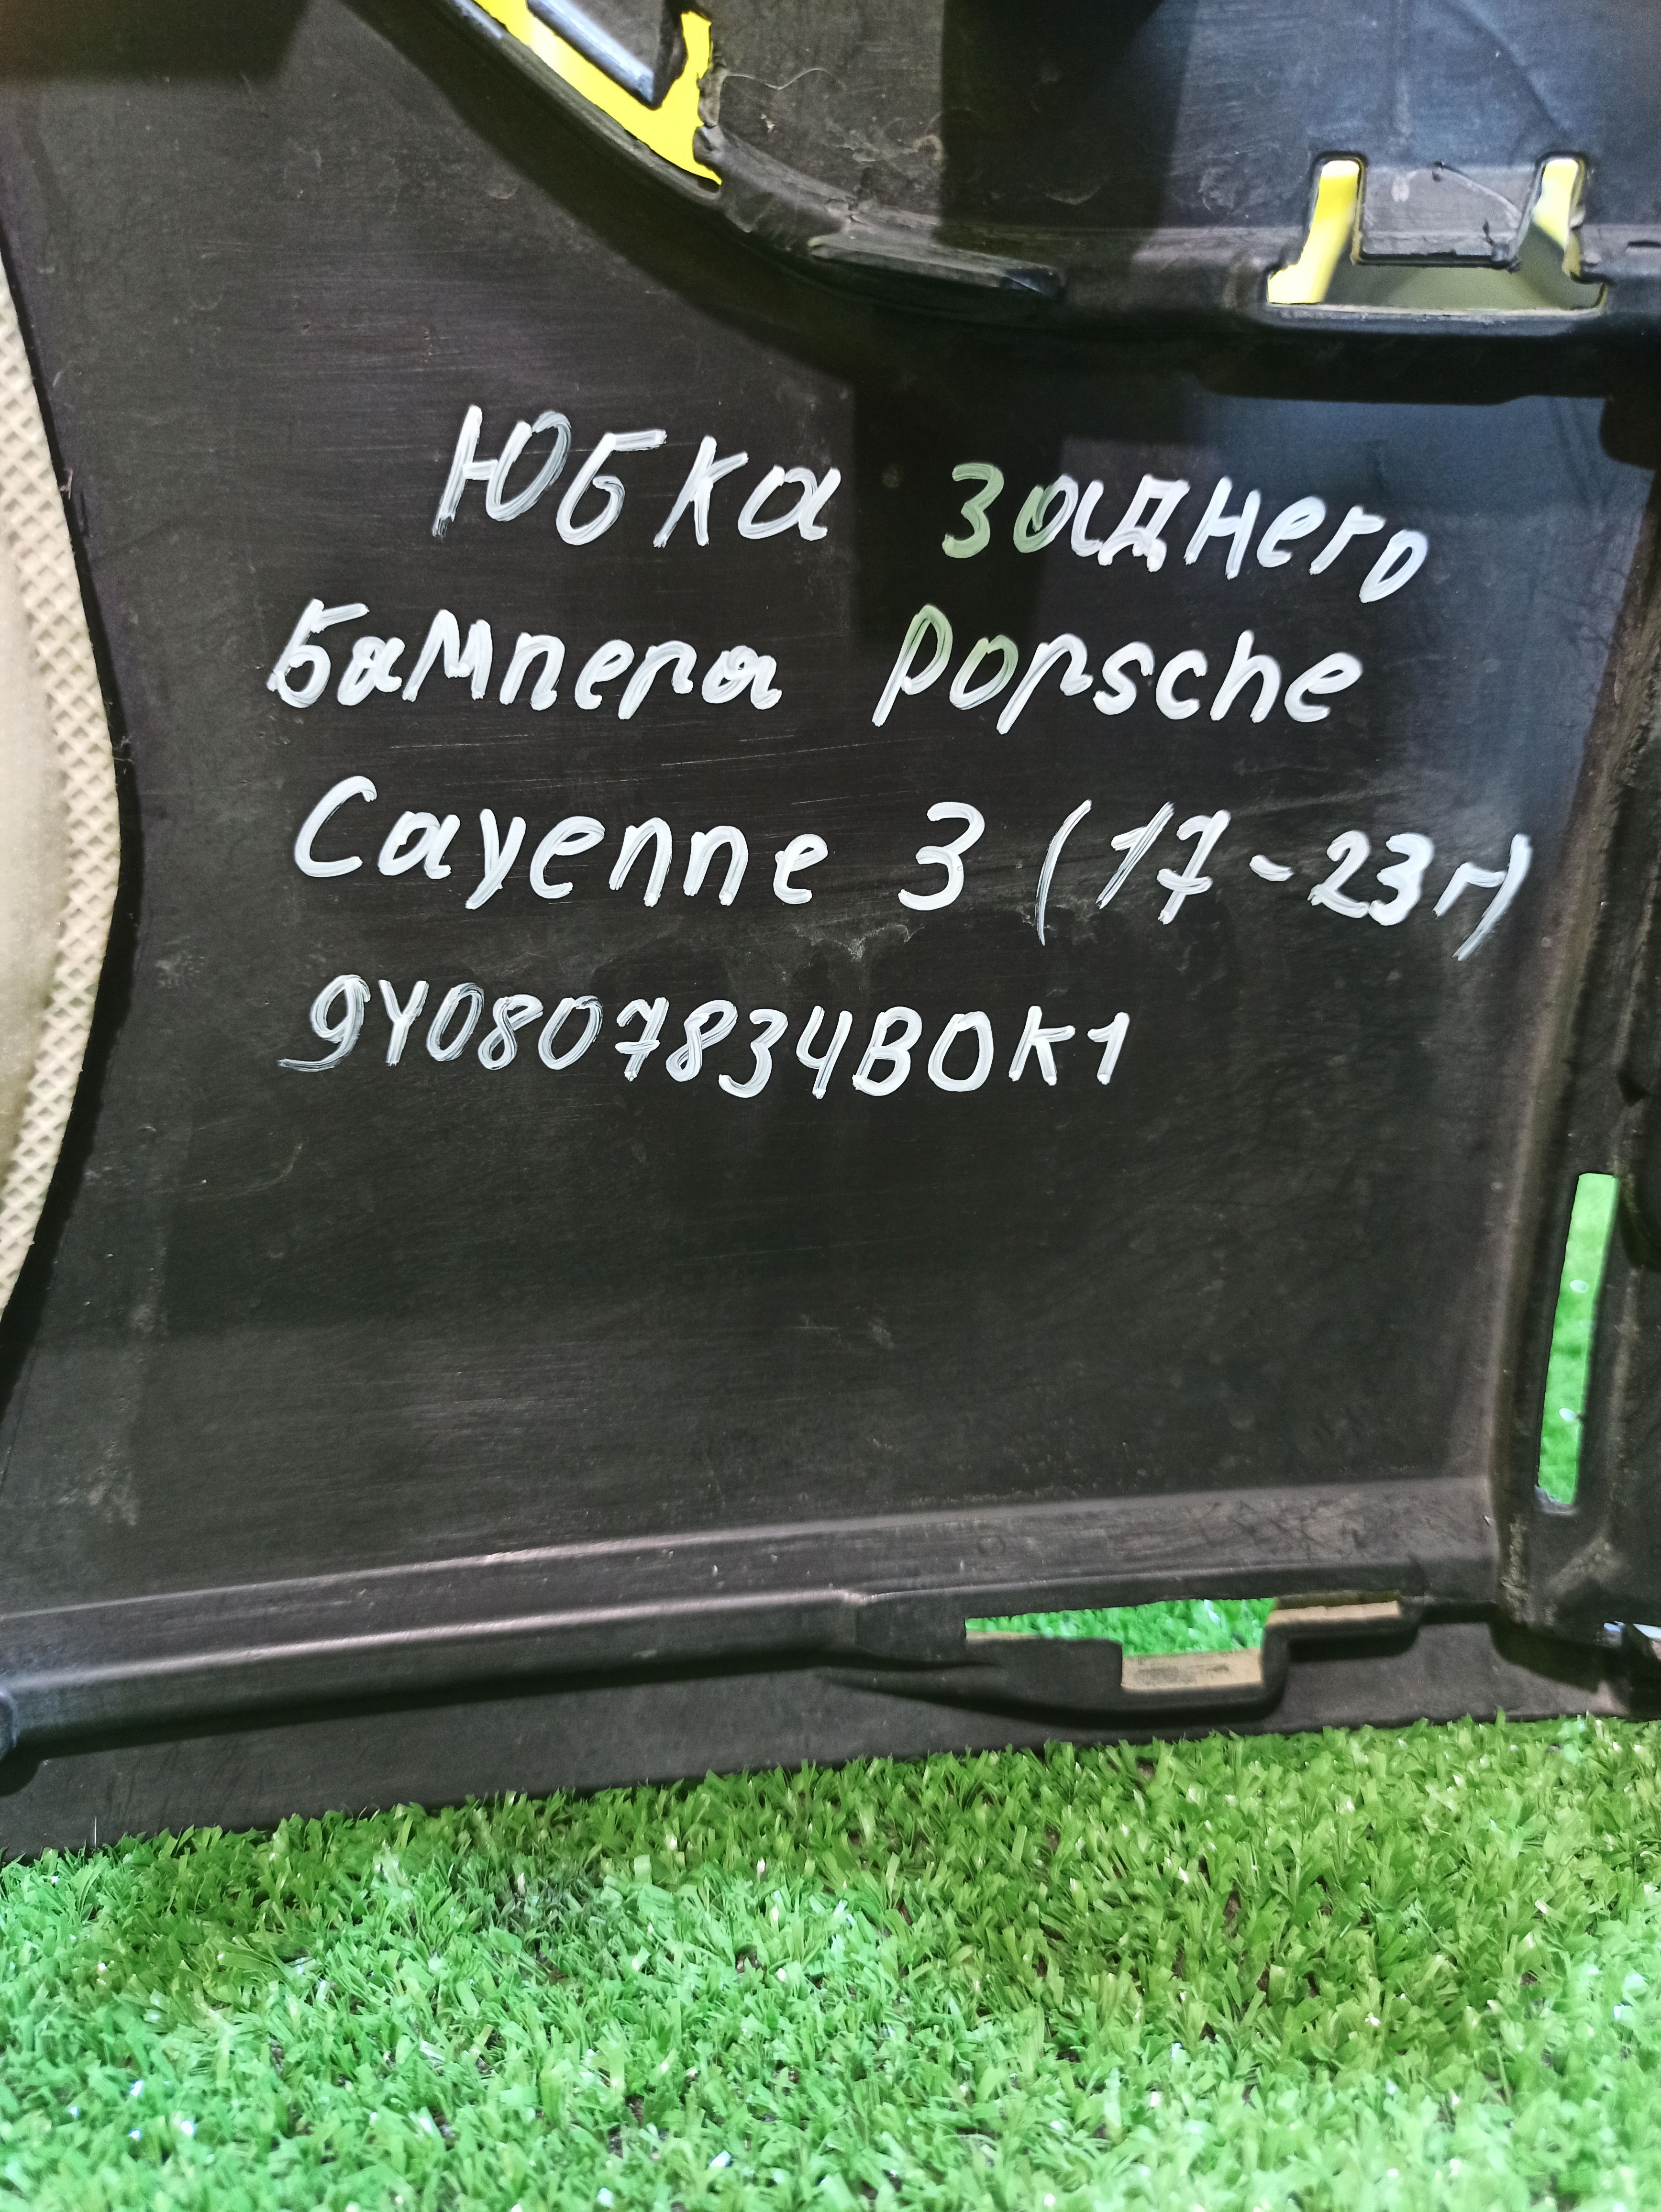 Юбка заднего
бампера Porsche
Cayenne 3 (17-23г)
9Y0807834BOK1